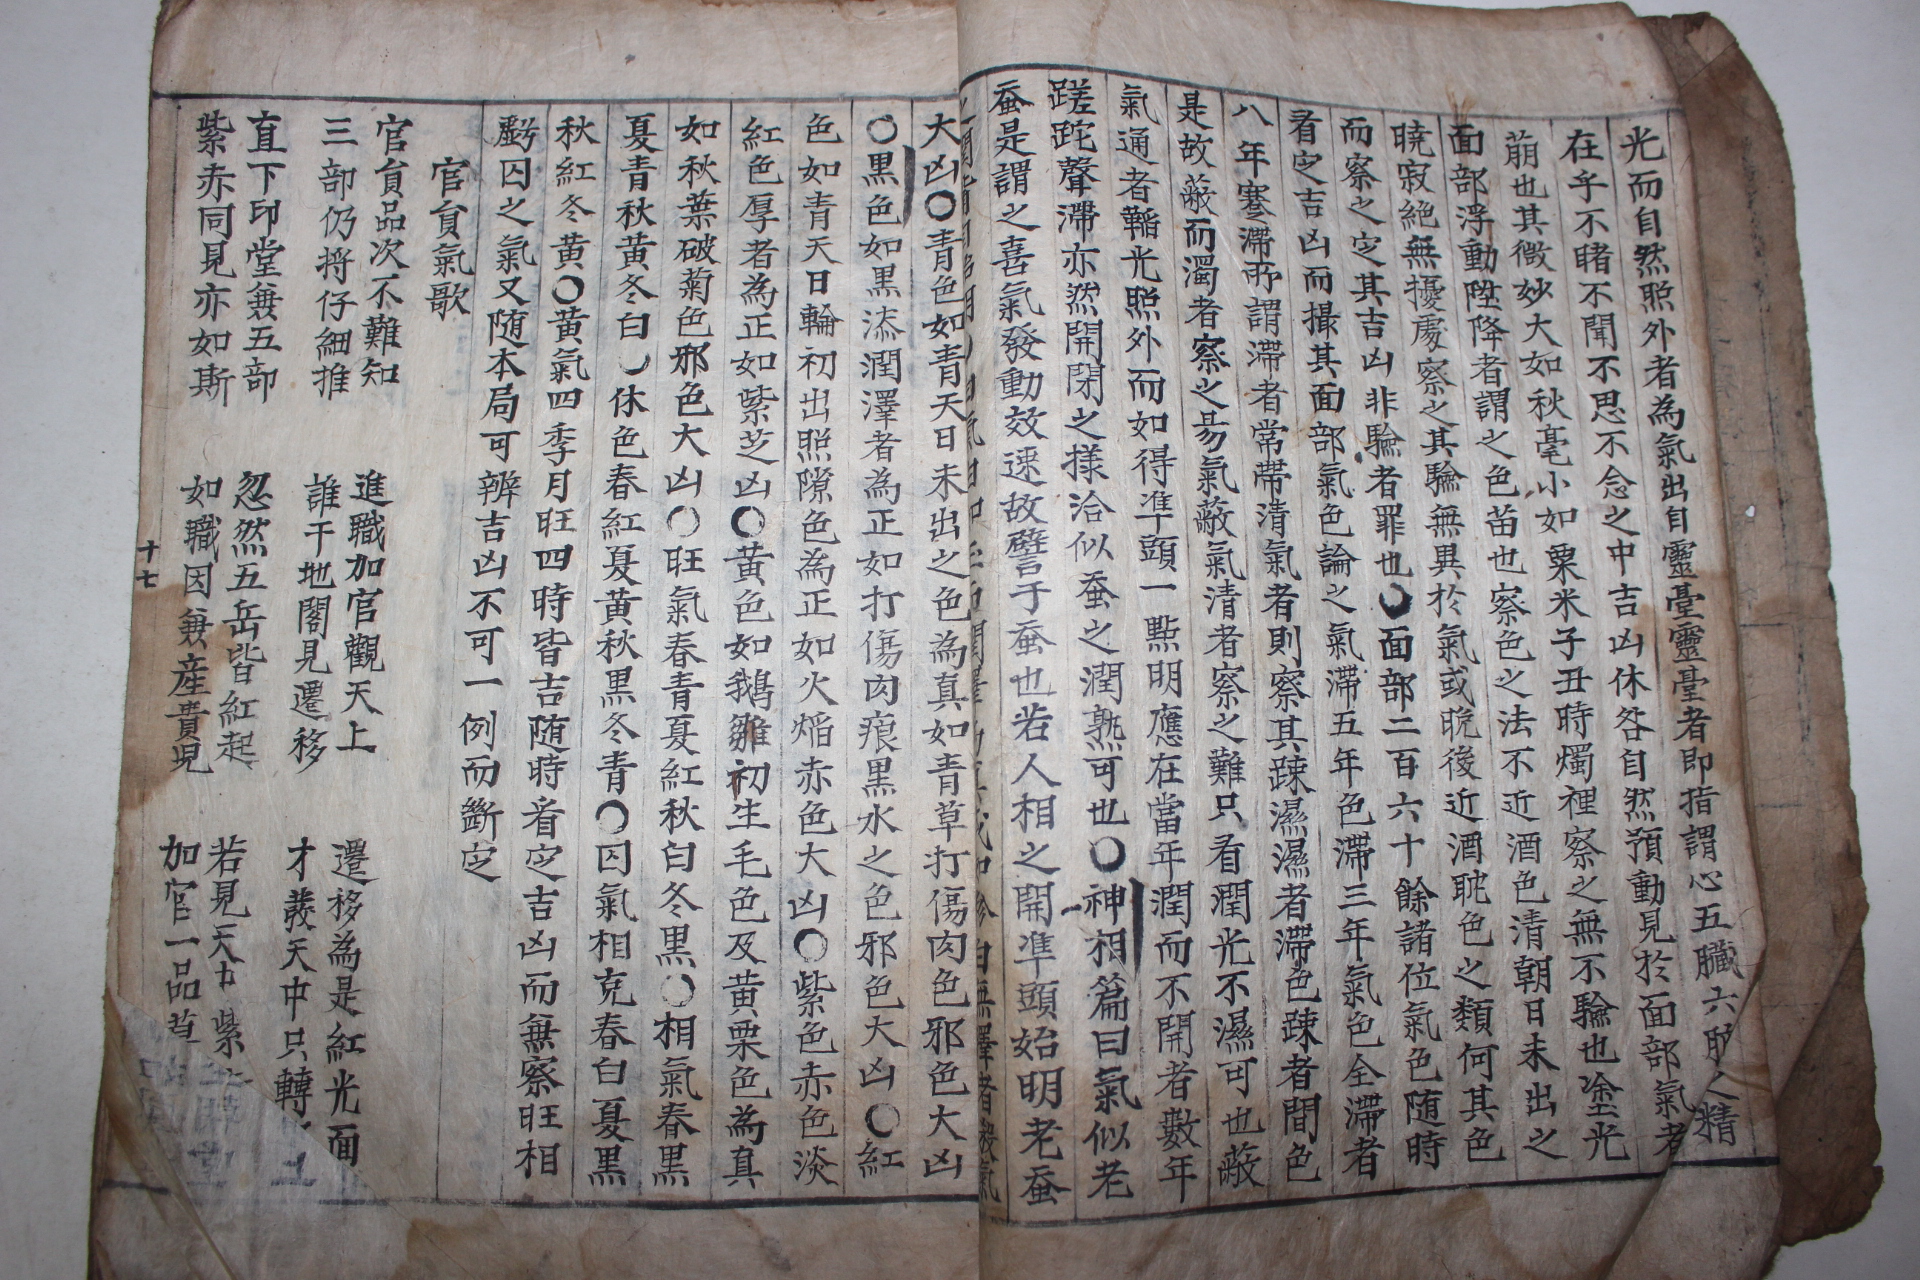 光而自然照外者為氣出自靈臺靈臺者即指謂心五臟六之精
在乎不睹不聞不思不念之中吉凶休咎自然預動見於面部氣者
萠也其微妙大如秋毫小如粟米子丑時燭裡察之無不驗也塗光
面部浮動陞降者謂之色苗也察色之法不近酒色清朝日未出之
曉寂絶無擾處察之其驗無異於氣或晩後近酒耽色之類何其色
而察之定其吉凶非驗者罪也○面部二百六十餘諸位氣色随時
看定吉凶而撮其面部氣色論之氣滯五年色滯三年氣色全滯者
八年蹇滯所謂滯者常帶清氣者則察其踈濕濕者滯色踈者間色
是故蔽而濁者察之易氣蔽氣清者察之難只看潤光不濕可也蔽
氣通者韜光照外而如得凖頭一點明應在當年潤而不開者數年
蹉跎聲滯亦然開閉之様洽似蚕之潤熟可也○神相篇曰氣似老
蚕是謂之喜氣發動效速故譬于蚕也若人相之開凖頭始明老蚕
大凶○青色如青天日未出之色為真如青草打傷肉色邪色大凶
○黒色如黒漆潤澤者為正如打傷肉痕黒水之色邪色大凶○紅
色如青天日輪初出照隙色為正如火焰赤色大凶○紫色赤色淡
紅色厚者為正如紫芝凶○黄色如鵝雛初生毛色及黄栗色為真
如秋葉破菊色邪色大凶○旺氣春青夏紅秋白冬黒○相氣春黒
夏青秋黄冬白○休色春紅夏黄秋黒冬青○囚氣相克春白夏黒
秋紅冬黄○黄氣四季月旺四時皆吉随時看定吉凶而無察旺相
虧囚之氣又随本局可辨吉凶不可一例而斷定
官員氣歌
官員品次不難知 進職加官觀天上 遷移為是紅光面
三部仍将仔細推 誰干地閣見遷移 才羙天中只轉
直下印堂兼五部 忽然五岳皆紅起 若見天中紫
紫赤同見亦如斯 如職因兼産貴児 加官一品
十七